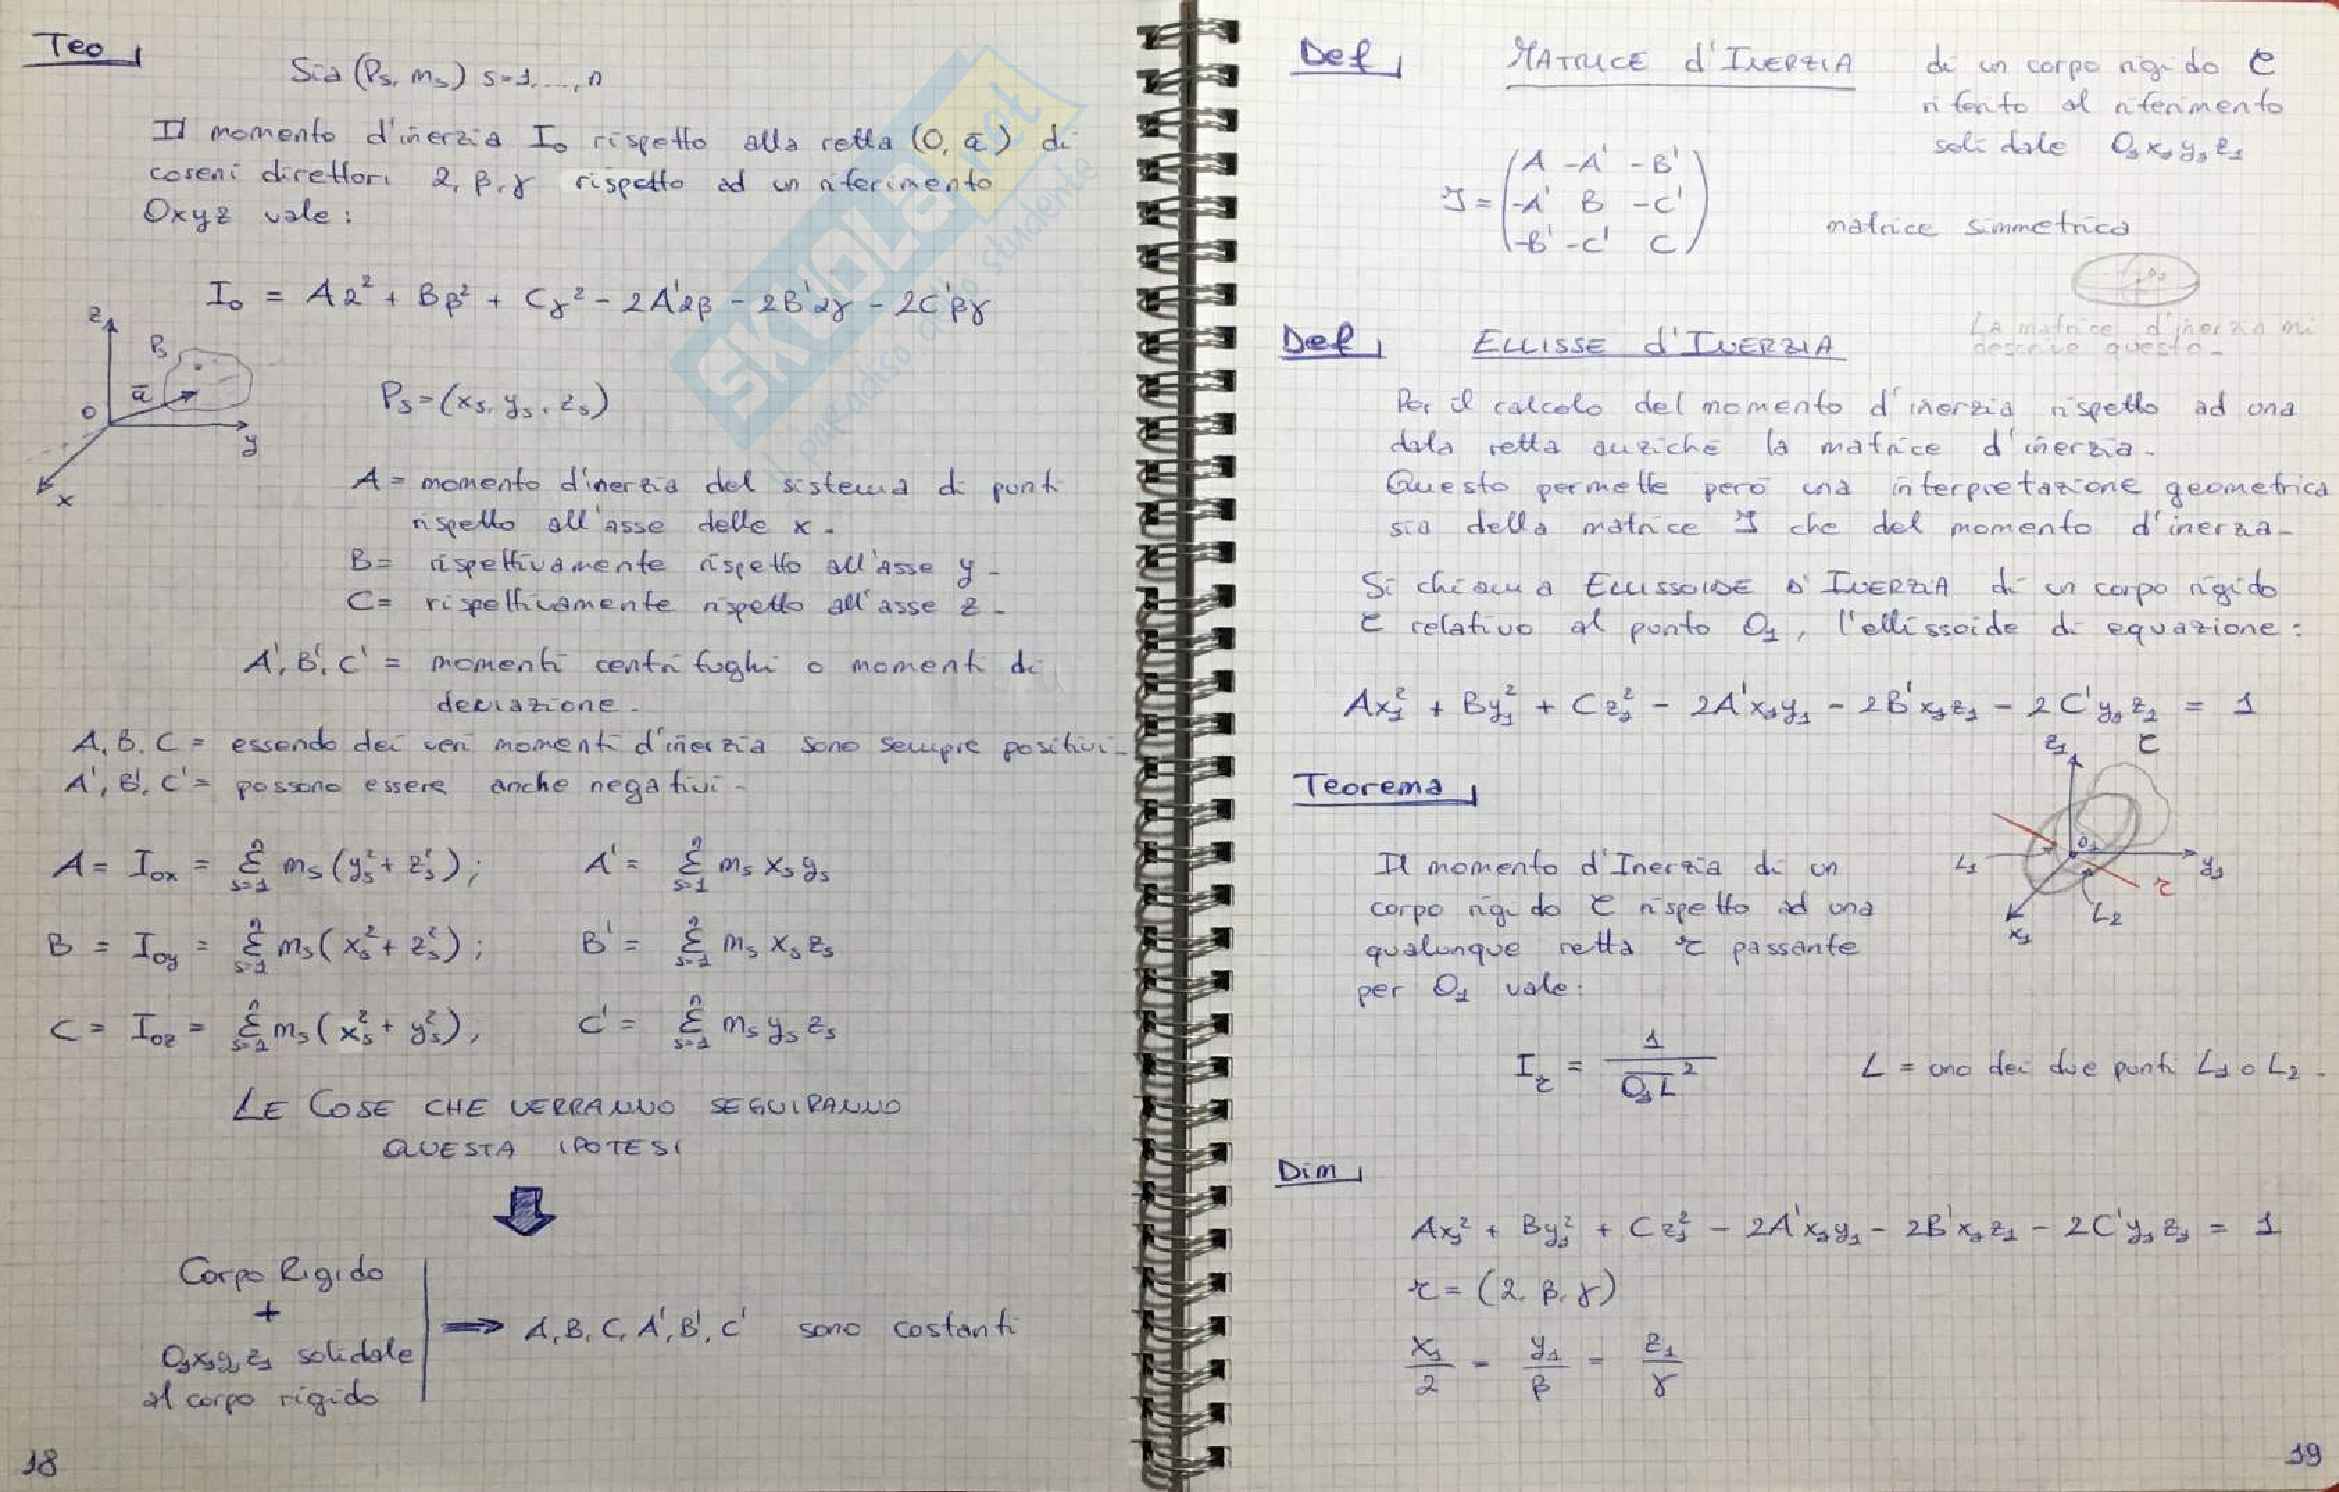 Teo
Sia (Ps, ms) s=1,...,n
Il momento d'inerzia Io rispetto alla retta (O, a̅) di
coseni direttori α, β, γ rispetto ad un riferimento
Oxyz vale:
Io = Aα² + Bβ² + Cγ² - 2A'αβ - 2B'αγ - 2C'βγ
z
Ps
a̅
O
y
x
Ps=(xs, ys, zs)
A = momento d'inerzia del sistema di punti
rispetto all'asse delle x.
B= rispettivamente rispetto all'asse y.
C= rispettivamente rispetto all'asse z.
A', B', C' = momenti centrifughi o momenti di
deviazione.
A, B, C = essendo dei veri momenti d'inerzia sono sempre positivi.
A', B', C' = possono essere anche negativi.
A = Iox = Σ(s=1..n) ms (ys² + zs²); A' = Σ(s=1..n) ms xs ys
B = Ioy = Σ(s=1..n) ms (xs² + zs²); B' = Σ(s=1..n) ms xs zs
C = Ioz = Σ(s=1..n) ms (xs² + ys²), C' = Σ(s=1..n) ms ys zs
LE COSE CHE VERRANNO SEGUIRANNO
QUESTA IPOTESI
Corpo Rigido
+
O1x1y1z1 solidale
al corpo rigido
⟹ A, B, C, A', B', C' sono costanti
18
SKUOLA.net
il paradiso dello studente
Def MATRICE d'INERZIA di un corpo rigido C
rifento al riferimento
solidale O1x1y1z1
J = (A -A' -B'
-A' B -C'
-B' -C' C)
matrice simmetrica
La matrice d'inerzia mi
descrive questo.
Def ELLISSE d'INERZIA
Per il calcolo del momento d'inerzia rispetto ad una
data retta anziché la matrice d'inerzia.
Questo permette però una interpretazione geometrica
sia della matrice J che del momento d'inerzia.
Si chiama ELLISSOIDE D'INERZIA di un corpo rigido
C relativo al punto O1, l'ellissoide di equazione:
Ax1² + By1² + Cz1² - 2A'x1y1 - 2B'x1z1 - 2C'y1z1 = 1
Teorema
z1
C
O1
L1
y1
r
L2
x1
Il momento d'Inerzia di un
corpo rigido C rispetto ad una
qualunque retta r passante
per O1 vale:
Ir = 1 / O1L² L = uno dei due punti L1 o L2.
Dim
Ax1² + By1² + Cz1² - 2A'x1y1 - 2B'x1z1 - 2C'y1z1 = 1
r = (α, β, γ)
x1/α = y1/β = z1/γ
19